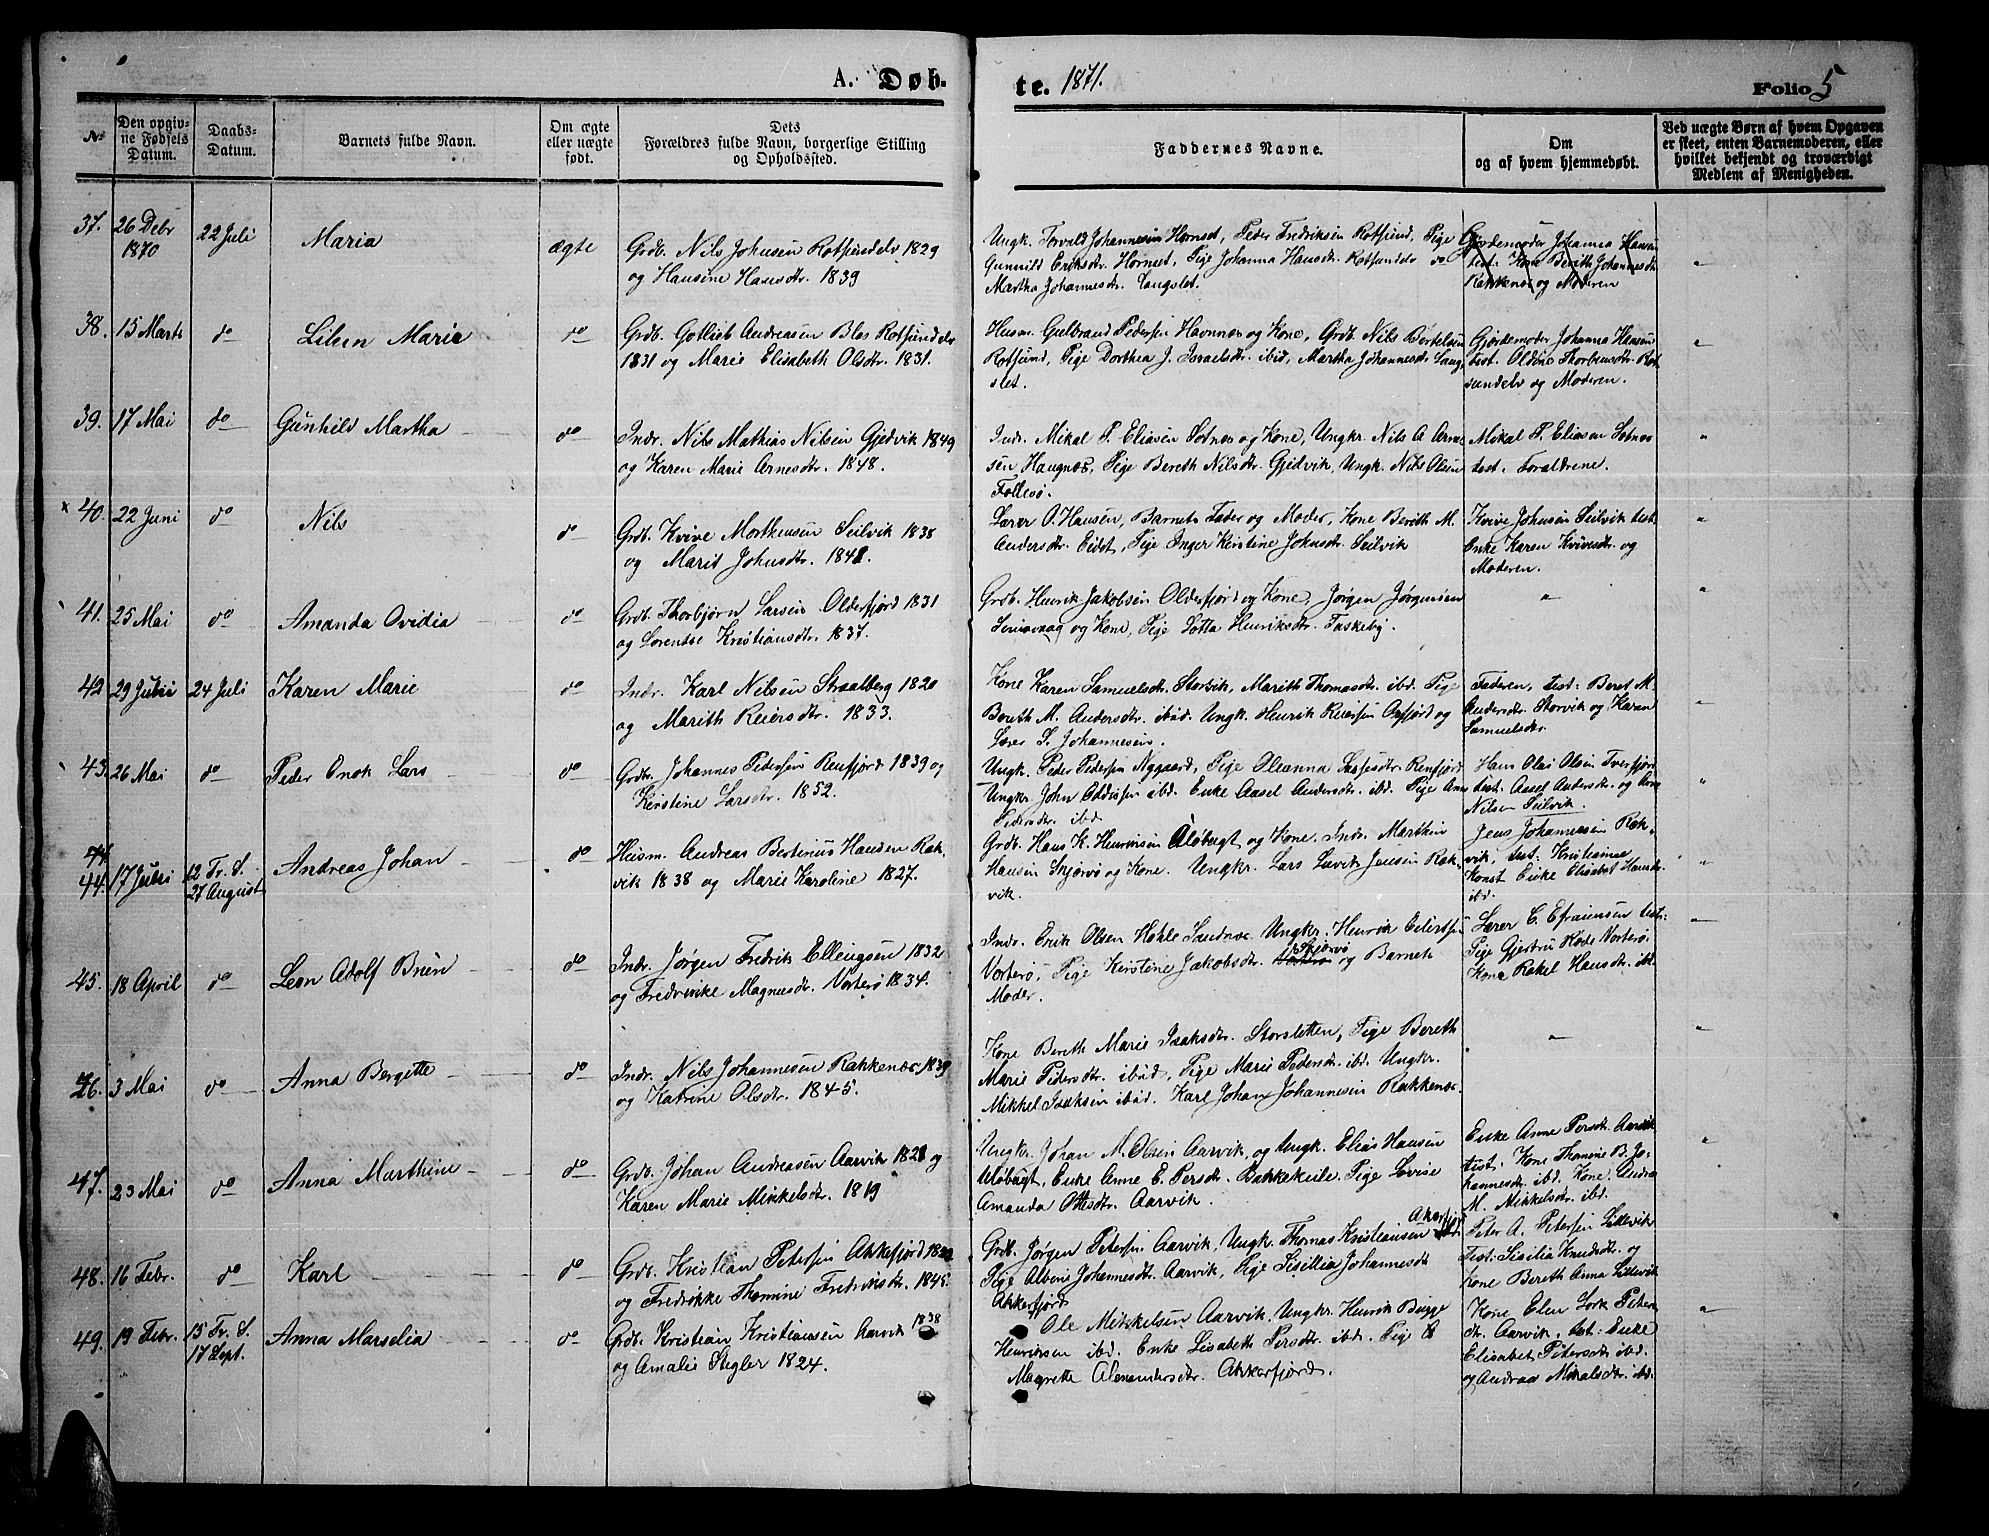 A. Døb.
te. 1871.
Folio 5
No
Den opgiv-
ne Fødsels
Datum.
Daabs-
Datum.
Barnets fulde Navn.
Om ægte
eller uægte
født.
Dets
Forældres fulde Navn, borgerlige Stilling
og Opholdssted.
Faddernes Navne.
Om
og af hvem hjemmedøbt.
Ved uægte Børn af hvem Opgaven
er skeet, enten Barnemoderen, eller
hvilket bekjendt og troværdigt
Medlem af Menigheden.
37. 26 Debr
1870
22 Juli
Maria
ægte
Grdb. Nils Johnsen Rotsundelv 1829
og Hansine Hansdtr. 1839
Ungk. Torvald Johannesen Hornset, Peder Fredriksen Rotsund, Pige
Gunnild Eriksdtr. Hornset, Pige Johanna Hansdtr. Rotsundelv
Martha Johannesdtr. Langslet.
Gjordemoder Johanna Hansen
test. Kone Berith Johannesdtr
Rakkenæs og Moderen
"
38. 15 Marts
do
Lileen Marie
do
Grdb. Gotlieb Andreasen Blos Rotsundelv
1831 og Marie Elisabeth Olsdtr. 1831.
Husm. Gulbrand Pedersen Havnnæs og Kone, Grdb. Nils Bertelsen
Rotsund, Pige Dorthea J. Israelsdtr. ibid, Martha Johannesdtr. Lang-
slet.
Gjordemoder Johanna Hansen
test. Oldine Thorbensdtr. Rot-
sundelv og Moderen.
"
39. 17 Mai
do
Gunhild Martha
do
Indr. Nils Mathias Nilsen Gjedvik 1849
og Karen Marie Arnesdtr. 1848.
Indr. Mikal P. Eliasen Sotnæs og Kone, Ungkr. Nils A Arne-
sen Haugnæs, Pige Bereth Nilsdtr. Gjedvik, Ungk. Nils Olsen
Follesø.
Mikal P. Eliasen Sotnæs
test. Forældrene.
"
x 40. 22 Juni
do
Nils
do
Grdb. Kvive Morthensen Seilvik 1838
og Marit Johnsdtr. 1841.
Lærer O. Hansen, Barnets Fader og Moder, Kone Bereth M.
Andersdtr. Eidet, Pige Inger Kirstine Johnsdtr. Seilvik
Kvive Johnsen Seilvik test.
Enke Karen Kvivesdtr. og
Moderen.
"
41. 25 Mai
do
Amanda Ovidia
do
Grdb. Thorbjørn Larsen Olderfjord 1831
og Lorentse Kristiansdtr. 1837.
Grdb. Henrik Jakobsen Olderfjord og Kone, Jørgen Jørgensen
og Kone, Pige Lotta Henriksdtr. Taskeby.
"
"
42 29 Juni
24 Juli
Karen Marie
do
Indr. Karl Nilsen Straalberg 1820
og Marith Reiersdtr. 1833.
Kone Karen Samuelsdtr. Storvik, Marith Thomasdtr. ibd. Pige
Bereth M. Andersdtr. ibid. Ungk. Henrik Reiersen Oxfjord og
Lærer S. Johannesen.
Faderen, test: Beret M.
Andersdtr. Storvik og Karen
Samuelsdtr.
"
43. 26 Mai
do
Peder Enok Lars
do
Grdb. Johannes Pedersen Reinfjord 1839 og
Kirstine Larsdtr. 1852.
Ungk. Peder Pedersen Nygaard, Pige Oleanna Lassesdtr. Reinfjord
Ungkr. John ibd. Enke Aasel Andersdtr. ibd. Pige Ane
Pedersdtr. ibd.
Hans Olai Olsen Tverfjord
test. Aasel Andersdtr. og Arne
Nilsen Seilvik.
"
44.
44. 17 Juni
12 Tr. S.
27 August
Andreas Johan
do
Husm. Andreas Bertinius Hansen Rak-
vik 1838 og Marie Karoline 1827.
Grdb. Hans K. Henriksen Aløbugt og Kone. Indr. Marthin
Hansen Skjervø og Kone. Ungkr. Lars Luvik Jensen Rak-
vik.
Jens Johannesen Rak-
vik, test: Kristianne
Konst Enke Elisabet Hansdtr.
ibd.
"
45. 18 April
do
Leon Adolf Brun
do
Indr. Jørgen Fredrik Ellingsen 1832
og Fredrikke Magnusdtr. Vorterø 1834.
Indr. Erik Olsen Hohle Sandnæs. Ungkr. Henrik Eilertsen
Vorterø, Pige Kirstine Jakobsdtr. Skjervø og Barnets
Moder.
Lærer C. Efraimsen test:
Pige Gjertru Hode Vorterø.
Kone Rakel Hansdtr. ibd.
"
46. 3 Mai
do
Anna Bergette
do
Indr. Nils Johannesen Rakkenæs 1839
og Katrine Olsdtr. 1845.
Kone Bereth Marie Isaksdtr. Storsletten, Pige Bereth
Marie Pedersdtr. ibid, Pige Marie Pedersdtr. ibd. Ungkr.
Mikkel Isaksen ibid. Karl Johan Johannesen Rakkenæs.
"
"
47. 23 Mai
do
Anna Marthine
do
Grdb. Johan Andreasen Aarvik 1828 og
Karen Marie Mikkelsdtr. 1819
Ungkr. Johan M. Olsen Aarvik, og Ungk. Elias Hansen
Aløbugt, Enke Anne E. Persdtr. Bakkekeile. Pige Lovise
Amanda Ottesdtr. Aarvik.
Enke Anne Persdtr. Aarvik
test. Kone Thamine B. Jo-
hannesdtr. ibd. Kone Andrea
M. Mikkelsdtr. ibd.
"
48. 16 Febr.
do
Karl
do
Grdb. Kristian Petersen Akkefjord
og Fredrikke Thomine Fredriksdtr. 1845.
Grdb. Jørgen Petersen Aarvik, Ungk. Thomas Kristiansen Akarfjord
Pige Albine Johannesdtr. Aarvik, Pige Sisillia Johannesdtr
Akkerfjord
Peter A. Petersen Lillevik
Test: Sisilia Knudsdtr. og
Kone Bereth Anna Lillevik
49. 19 Febr.
15 Tr. S.
17 Sept.
Anna Marselia
do
Grdb. Kristian Kristiansen Aarvik 1838
og Amalie Stegler 1824.
Ole Mikkelsen Aarvik, Ungkr. Henrik Bugge
Henriksen ibd. Enke Lisabeth Persdtr. ibd. Pige
Magrette Alexandersdtr. Akkarfjord.
Kone Elen Lork Peters-
dtr. Aarvik, test: Enke
Elisabet Petersdtr. ibd.
og Andrea Mikalsdtr. ibd.
"